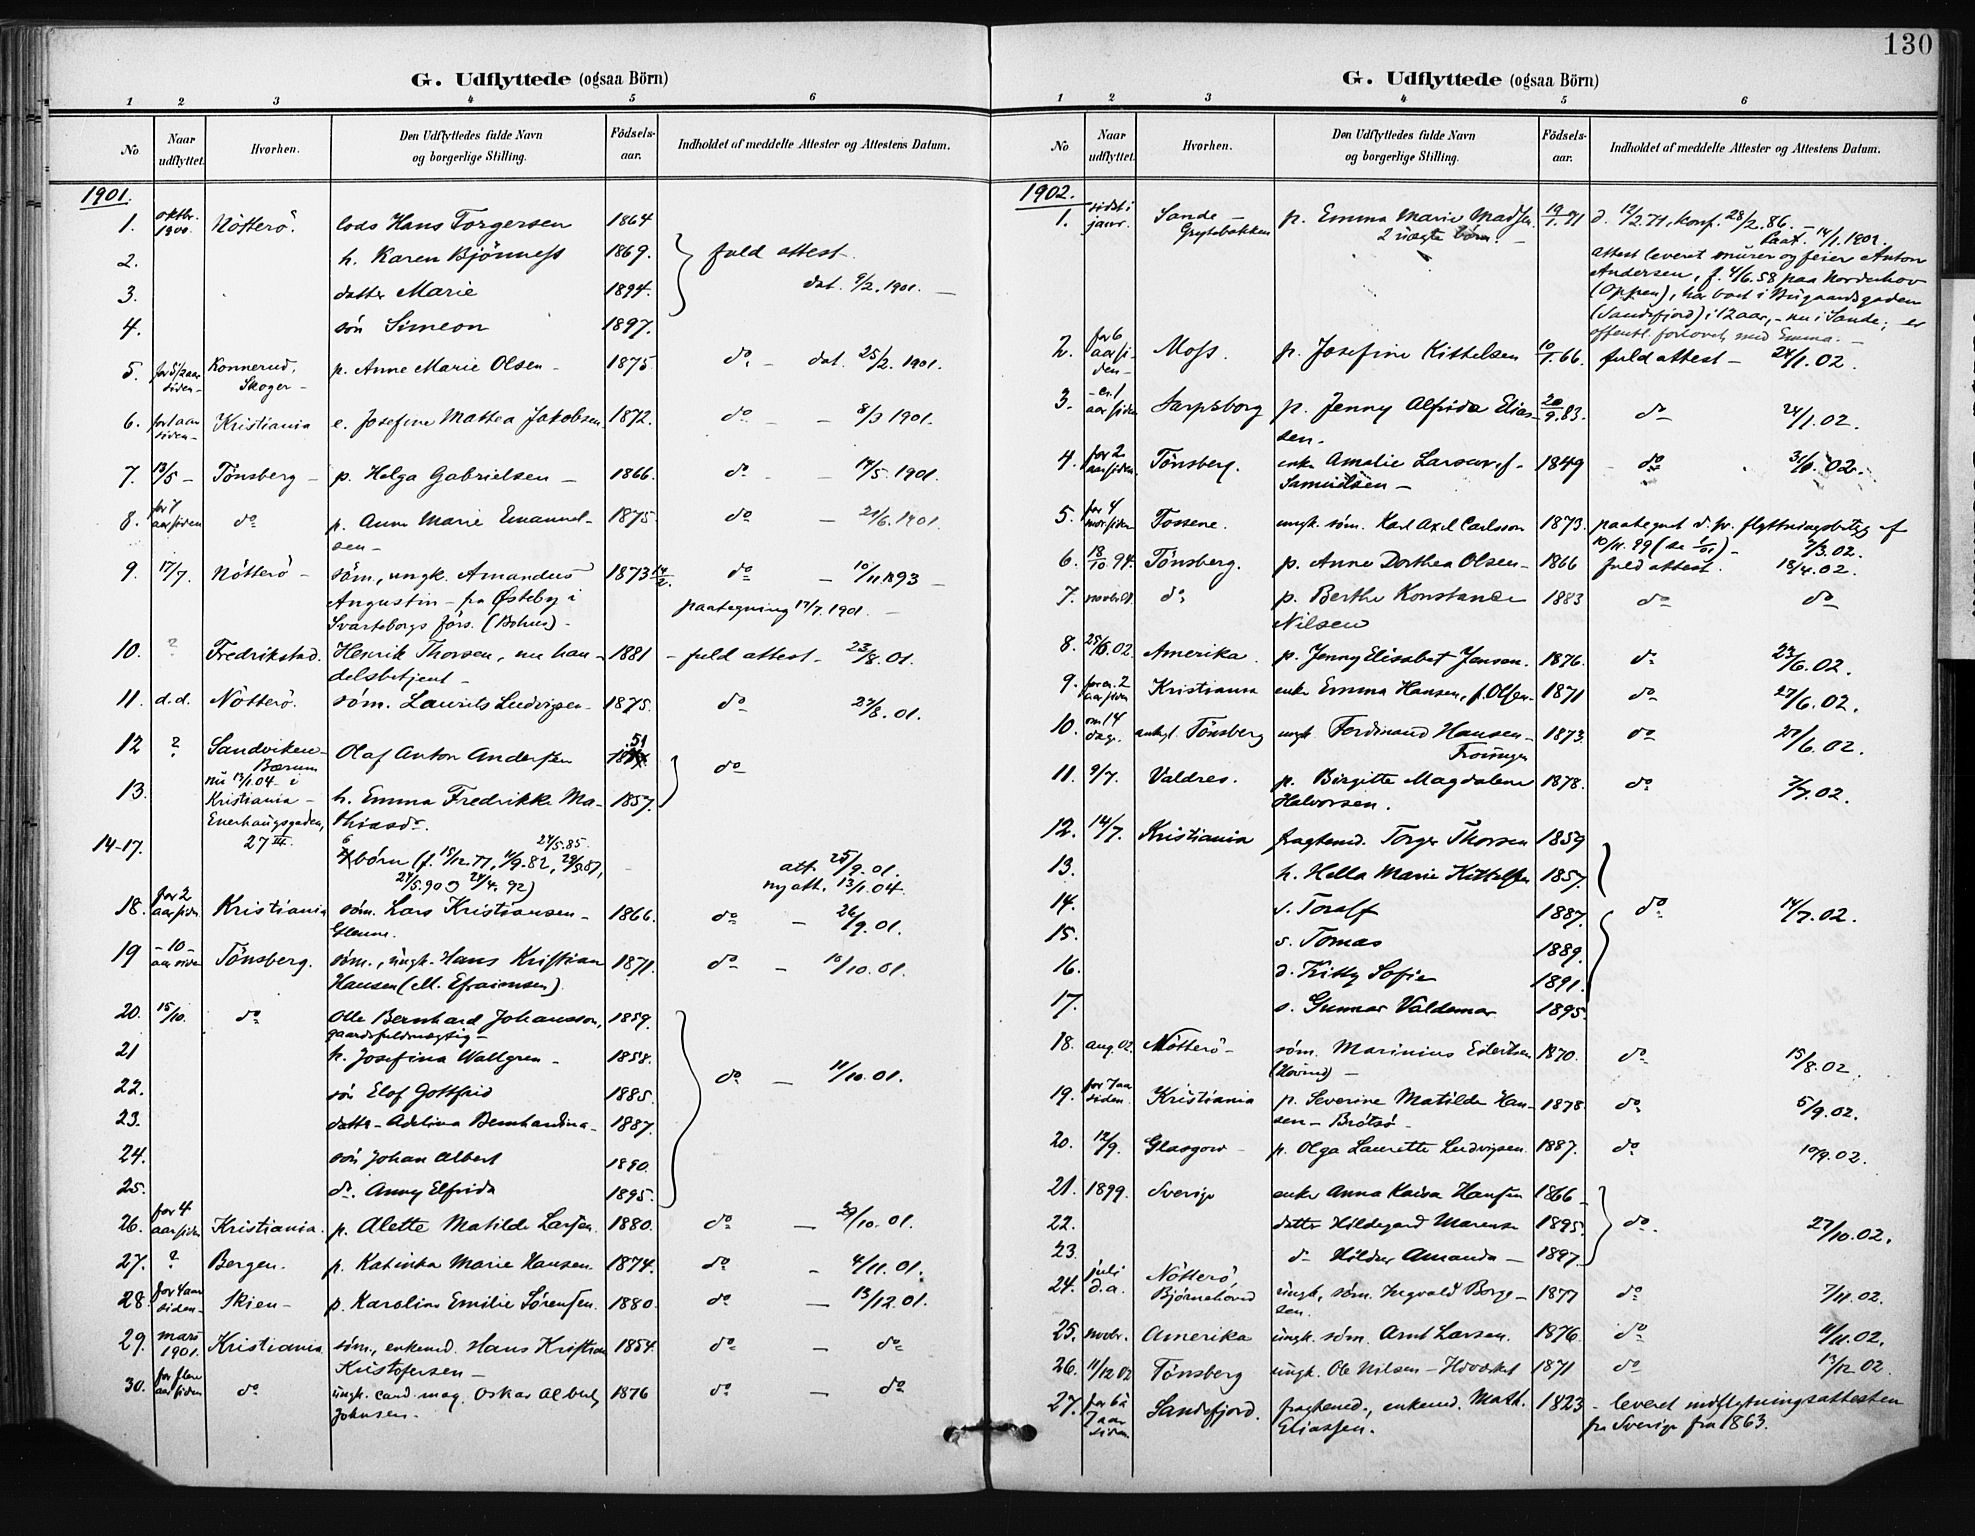 130
G. Udflyttede (ogsaa Börn)
1 2 3 4 5 6
No. Naar udflyttet. Hvorhen. Den Udflyttedes fulde Navn og borgerlige Stilling. Födsels-aar. Indholdet af meddelte Attester og Attestens Datum.
1901.
1. oktbr. 1900. Nötterö. lods Hans Torgersen 1864
2. h. Karen Björness 1869. fuld attest.
3. datter Marie 1894. dat. 9/2.1901. —
4. sön Simeon 1897.
5. for 5 1/2 aar siden - Konnerud, Skoger - p. Anne Marie Olsen - 1875. do - dat. 25/2. 1901.
6. for 1 aar siden - Kristiania e. Josefine Mathea Jakobsen 1872. do - 8/3 1901.
7. 13/5 - Tönsberg - p. Helga Gabrielsen - 1866. do - 14/5. 1901.
8. for 7 aar siden do p. Anna Marie Emanuel-
sen - 1875. do - 21/6. 1901.
9. 17/7. Nötterö - söm., ungk. Amandus 1873 14/2. do - 10/11 1893 -
Augustin - fra Østeby i paategning 17/7. 1901. -
Svarteborgs førs. (Bohus) -
10. ? Fredrikstad. Henrik Thorsen, nu han-
delsbetjent - 1881 - fuld attest - 23/8. 01.
11. d.d. Nötterö. söm. Laurits Ludvigsen - 1875. do 27/8. 01.
12 ? Sandviken - Bærum Olaf Anton Anderssen .51 do
nu 13/1.04 i
13. Kristiania - h. Emma Fredrikke Ma-
thiasdr. 1857.
Enerhaugsgaden, 27 III.
14-17. 6 börn (f. 15/12.77, 11/9.82, 24/5.85.
24/5.90 & 24/4. 92) att. 25/9. 01.
ny att. 13/1.04.
18. for 2 aar siden Kristiania söm. Lars Kristiansen - 1866. do - 26/9. 01.
19 - 10 - aar siden Tönsberg. söm., ungk. Hans Kristian 1871. do - 10/10. 01.
Hansen (M. Efraimsen)
20. 15/10. do Olle Bernhard Johansson, 1859.
gaardsfuldmægtig -
21 h. Josefina Wallgren - 1858. do - 11/10. 01.
22. sön Elof Gottfrid 1885.
23. datter - Adelina Bernhardina - 1887.
24. sön Johan Albert 1890.
25. d. Anny Elfrida 1895.
26. for 4 aar siden Kristiania. p. Alette Matilde Larsen 1880. do - 29/10. 01.
27. ? Bergen. p. Katinka Marie Hansen 1874. do - 4/11. 01.
28. for 4 aar siden - Skien - p. Karoline Emilie Sörensen. 1880. do - 13/12. 01.
29. mars 1901. Kristiania söm., enkemd. Hans Kristian 1854. do - do
Kristofersen -
30. for flere aar siden do ungk. cand. mag. Oskar Albert 1876 do - do
Johnsen.
G. Udflyttede (ogsaa Börn)
1 2 3 4 5 6
No Naar udflyttet. Hvorhen. Den Udflyttedes fulde Navn og borgerlige Stilling. Födsels-aar. Indholdet af meddelte Attester og Attestens Datum.
1902.
1. sidst i janr. Sande - p. Emma Marie Madsen 19/1.71 d. 12/2.71, konf. 28/2. 86. -
2 uægte börn. - 14/1.1902.
attest leveret murer og feier Anton
Andersen, f. 4/6.58 paa Norderhov
(Oppen), har boet i Bugaardsgaden
(Sandefjord) i 12 aar, - nu i Sande; er
offentl. forlovet med Emma. -
2. for 6 aar siden - Moss. p. Josefine Kittelsen 10/1.66. fuld attest - 24/1. 02.
3. - ca. 1 aar siden Sarpsborg p. Jenny Alfrida Elias-
sen. 20/9.83. do 24/1.02.
4. for 2 aar siden. Tönsberg. enke Amalie Larsen, f.
Samuelsen - 1849 - do 31/1. 02.
5. for 4 mdr. siden Tossene. ungk. söm. Karl Axel Carlsson 1873. paategnet d. sv. flyttningsbetyg af
10/11. 99 - 7/3. 02.
6. 18/10 94. Tönsberg. p. Anne Dorthea Olsen - 1866 fuld attest. 18/4. 02.
7. do p. Berthe Konstance 1883 do do
Nilsen
8. 25/6.02 Amerika. p. Jenny Elisabet Jensen. 1876. do 23/6. 02.
9. for ca. 2 aar siden Kristiania enke Emma Hansen, f. Olsen - 1871 do 27/6. 02.
10. om 14 dage. Tönsberg ungk. Ferdinand Hansen - 1873. do 27/6. 02.
11. 9/7. Valdres. p. Birgitte Magdalene 1878. do 7/7. 02.
Halvorsen.
12. 14/7. Kristiania fragtemd. Torger Thorsen 1859
13. h. Hella Marie Kittelsen 1857.
14. s. Toralf 1887. do 14/7. 02.
15. s. Tomas 1889.
16. d. Kitty Sofie 1891.
17. s. Gunnar Valdemar 1895.
18. aug. 02. Nötterö - söm. Marinius Eilertsen 1870. do 15/8. 02.
19. for 7 aar siden. Kristiania p. Severine Matilde Han-
sen - Brötsö - 1878. do 5/9. 02.
20. 12/9. Glasgow - p. Olga Laurette Ludvigsen 1887. do 10/9. 02.
21. 1899. Sverige enke Anna Kaisa Hansen 1866 -
22. datter Hildegard Marense 1895. do 27/10. 02.
23. d. Hildur Amanda - 1897.
24. juli d.a. Nötterö, Bjørnebovd ungk. söm. Ingvald Borge-
sen. 1877 do 7/11. 02.
25. novbr. Amerika ungk. söm. Arnt Larsen. 1876. do 11/11. 02.
26. 11/12 02 Tönsberg ungk. Ole Nilsen - 1871 do 13/12 02
27. for 6 à 7 aar siden. Sandefjord. fragtemd., enkemd. Math. 1823 - leveret indflytningsattesten
Eliassen. fra Sverige fra 1863.